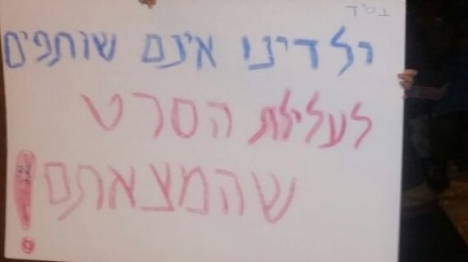 בס"ד
ילדינו אינם שותפים
לעלילת הסרט
שהמצאתם!